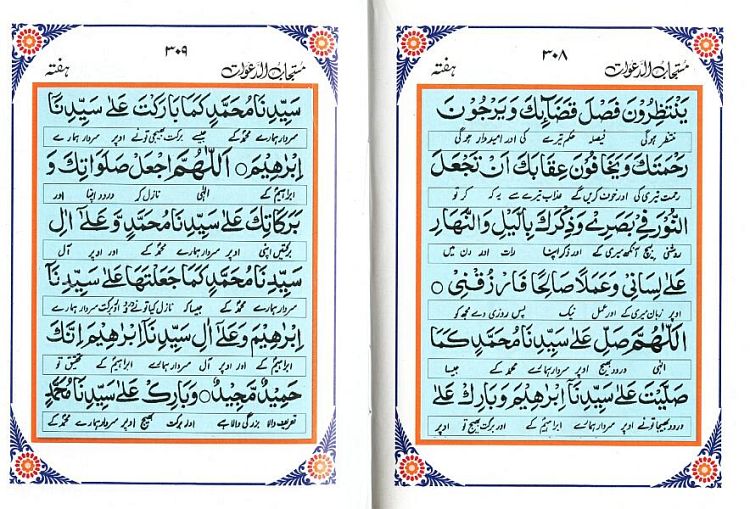 ۳۰۸
مستجاب الدعوات ہفتہ
يَنْتَظِرُوْنَ فَصْلَ قَضَآئِكَ وَيَرْجُوْنَ
منتظر ہونگی فیصلہ حکم تیرے کی اور امیدوار ہونگی
رَحْمَتَكَ وَيَخَافُوْنَ عِقَابَكَ اَنْ تَجْعَلَ
رحمت تیری کی اور خوف کریں گے عذاب تیرے سے یہ کہ کر تو
النُّوْرَ فِيْ بَصَرِيْ وَذِكْرَكَ بِالَّيْلِ وَالنَّهَارِ
روشنی بیچ آنکھ میری کے اور ذکر اپنا رات اور دن میں
عَلٰى لِسَانِيْ وَعَمَلًا صَالِحًا فَارْزُقْنِيْ ○
اوپر زبان میری کے اور عمل نیک پس روزی دے مجھ کو
اَللّٰهُمَّ صَلِّ عَلٰى سَيِّدِنَا مُحَمَّدٍ كَمَا
الٰہی درود بھیج اوپر سردار ہمارے محمد کے جیسا
صَلَّيْتَ عَلٰى سَيِّدِنَآ اِبْرٰهِيْمَ وَبَارِكْ عَلٰى
درود بھیجا تو نے اوپر سردار ہمارے ابراہیم کے اور برکت بھیج تو اوپر
۳۰۹
مستجاب الدعوات ہفتہ
سَيِّدِنَا مُحَمَّدٍ كَمَا بَارَكْتَ عَلٰى سَيِّدِنَآ
سردار ہمارے محمد کے جیسے برکت بھیجی تو نے اوپر سردار ہمارے
اِبْرٰهِيْمَ ○ اَللّٰهُمَّ اجْعَلْ صَلَوَاتِكَ وَ
ابراہیم کے الٰہی نازل کر درود اپنا اور
بَرَكَاتِكَ عَلٰى سَيِّدِنَا مُحَمَّدٍ وَّعَلٰٓى اٰلِ
برکتیں اپنی اوپر سردار ہمارے محمد کے اور اوپر آل
سَيِّدِنَا مُحَمَّدٍ كَمَا جَعَلْتَهَا عَلٰى سَيِّدِنَآ
سردار ہمارے محمد کے جیسا کہ نازل کیا تو نے برکت سردار ہمارے
اِبْرٰهِيْمَ وَعَلٰٓى اٰلِ سَيِّدِنَآ اِبْرٰهِيْمَ اِنَّكَ
ابراہیم کے اور اوپر آل سردار ہمارے ابراہیم کے تحقیق تو
حَمِيْدٌ مَّجِيْدٌ ○ وَبَارِكْ عَلٰى سَيِّدِنَا مُحَمَّدٍ
تعریف والا بزرگی والا ہے اور برکت بھیج اوپر سردار ہمارے محمد کے